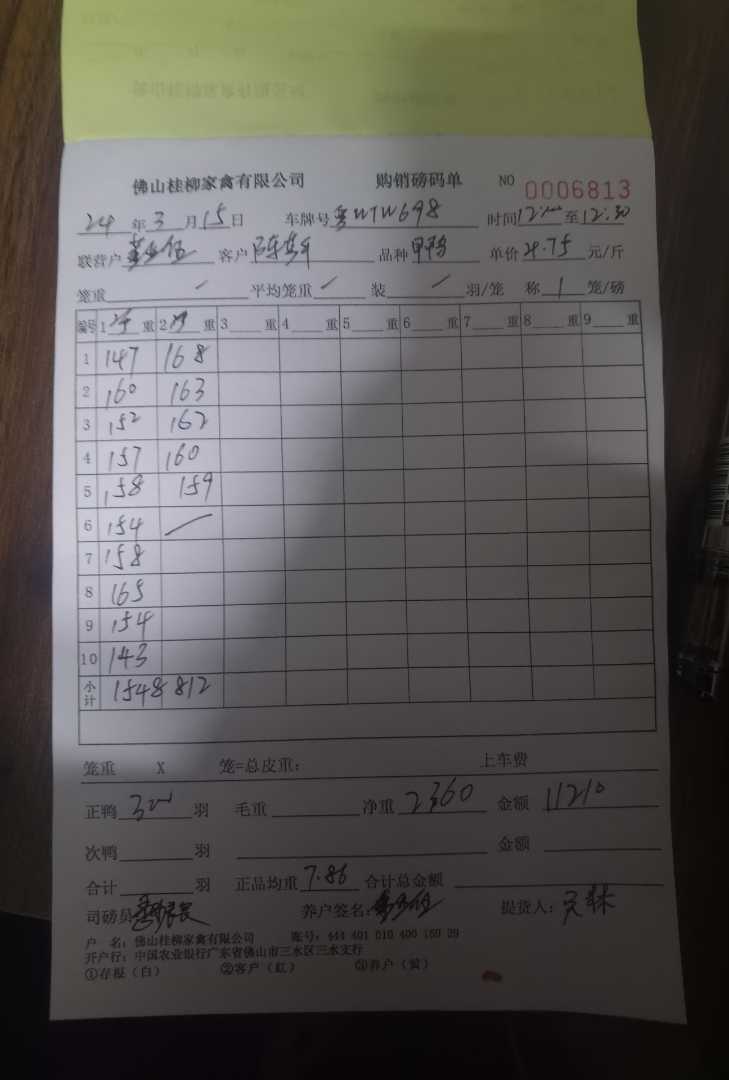 佛山桂柳家禽有限公司 购销磅码单 NO 0006813
24 年 3 月 15 日 车牌号 粤WTW698 时间 12:00 至 12:30
联营户 客户 品种 单价 4.75 元/斤
笼重 平均笼重 装 羽/笼 称 1 笼/磅
编号 1 重 2 重 3 重 4 重 5 重 6 重 7 重 8 重 9 重
1 147 168
2 160 163
3 152 162
4 157 160
5 158 159
6 154
7 158
8 165
9 154
10 143
小计 1548 812
笼重 X 笼=总皮重: 上车费
正鸭 300 羽 毛重 净重 2360 金额 11210
次鸭 羽 金额
合计 羽 正品均重 7.86 合计总金额
司磅员: 养户签名: 提货人:
户 名: 佛山桂柳家禽有限公司
开户行: 中国农业银行广东省佛山市三水区三水支行
①存根(白) ②客户(红) ③养户(黄)